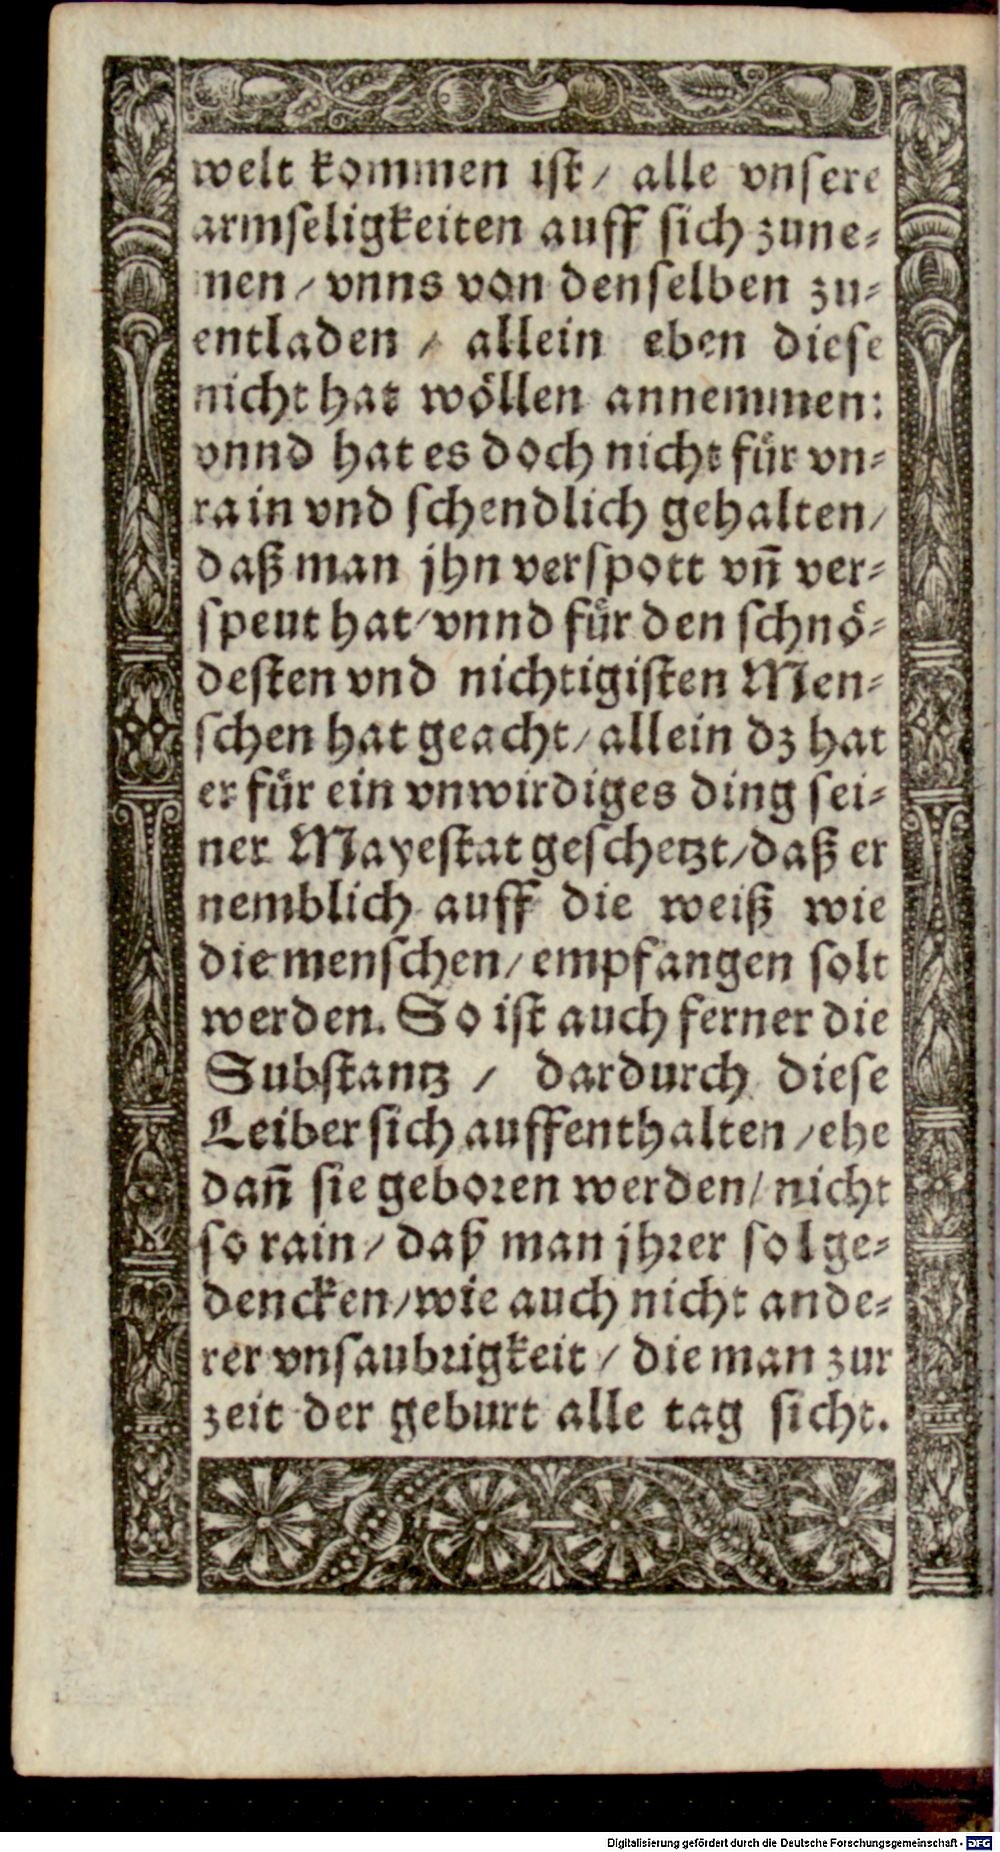 welt kommen ist/ alle vnsere
armseligkeiten auff sich zune-
men/ vnns von denselben zu-
entladen / allein eben diese
nicht hat wöllen annemmen:
vnnd hat es doch nicht für vn-
rain vnd schendlich gehalten/
daß man jhn verspott vñ ver-
speut hat/ vnnd für den schnö-
desten vnd nichtigisten Men-
schen hat geacht/ allein dz hat
er für ein vnwirdiges ding sei-
ner Mayestat geschetzt/ daß er
nemblich auff die weiß wie
die menschen/ empfangen solt
werden. So ist auch ferner die
Substantz / dardurch diese
Leiber sich auffenthalten /ehe
dañ sie geboren werden/ nicht
so rain/ daß man jhrer sol ge-
dencken/ wie auch nicht ande-
rer vnsaubrigkeit / die man zur
zeit der geburt alle tag sicht.
Digitalisierung gefördert durch die Deutsche Forschungsgemeinschaft - DFG